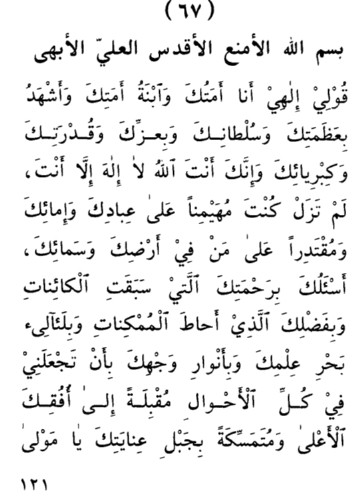 (٦٧)
بسم الله الأمنع الأقدس العليّ الأبهى
قُوْلِيْ إِلٰهِيْ أَنا أَمَتُكَ وَٱبْنَةُ أَمَتِكَ وَأَشْهَدُ
بِعَظَمَتِكَ وَسُلْطانِكَ وَبِعِزِّكَ وَقُدْرَتِكَ
وَكِبْرِيائِكَ وَإِنَّكَ أَنْتَ ٱللهُ لاٰ إِلٰهَ إِلَّا أَنْتَ،
لَمْ تَزَلْ كُنْتَ مُهَيْمِناً عَلىٰ عِبادِكَ وَإِمائِكَ
وَمُقْتَدِراً عَلىٰ مَنْ فِيْ أَرْضِكَ وَسَمائِكَ،
أَسْئَلُكَ بِرَحْمَتِكَ ٱلَّتِيْ سَبَقَتِ ٱلْكائِناتِ
وَبِفَضْلِكَ ٱلَّذِيْ أَحاطَ ٱلْمُمْكِناتِ وَبِلَئآلِىء
بَحْرِ عِلْمِكَ وَبِأَنْوارِ وَجْهِكَ بِأَنْ تَجْعَلَنِيْ
فِيْ كُلِّ ٱلْأَحْوالِ مُقْبِلَةً إِلىٰ أُفُقِكَ
ٱلْأَعْلىٰ وَمُتَمَسِّكَةً بِحَبْلِ عِنايَتِكَ يٰا مَوْلىٰ
١٢١